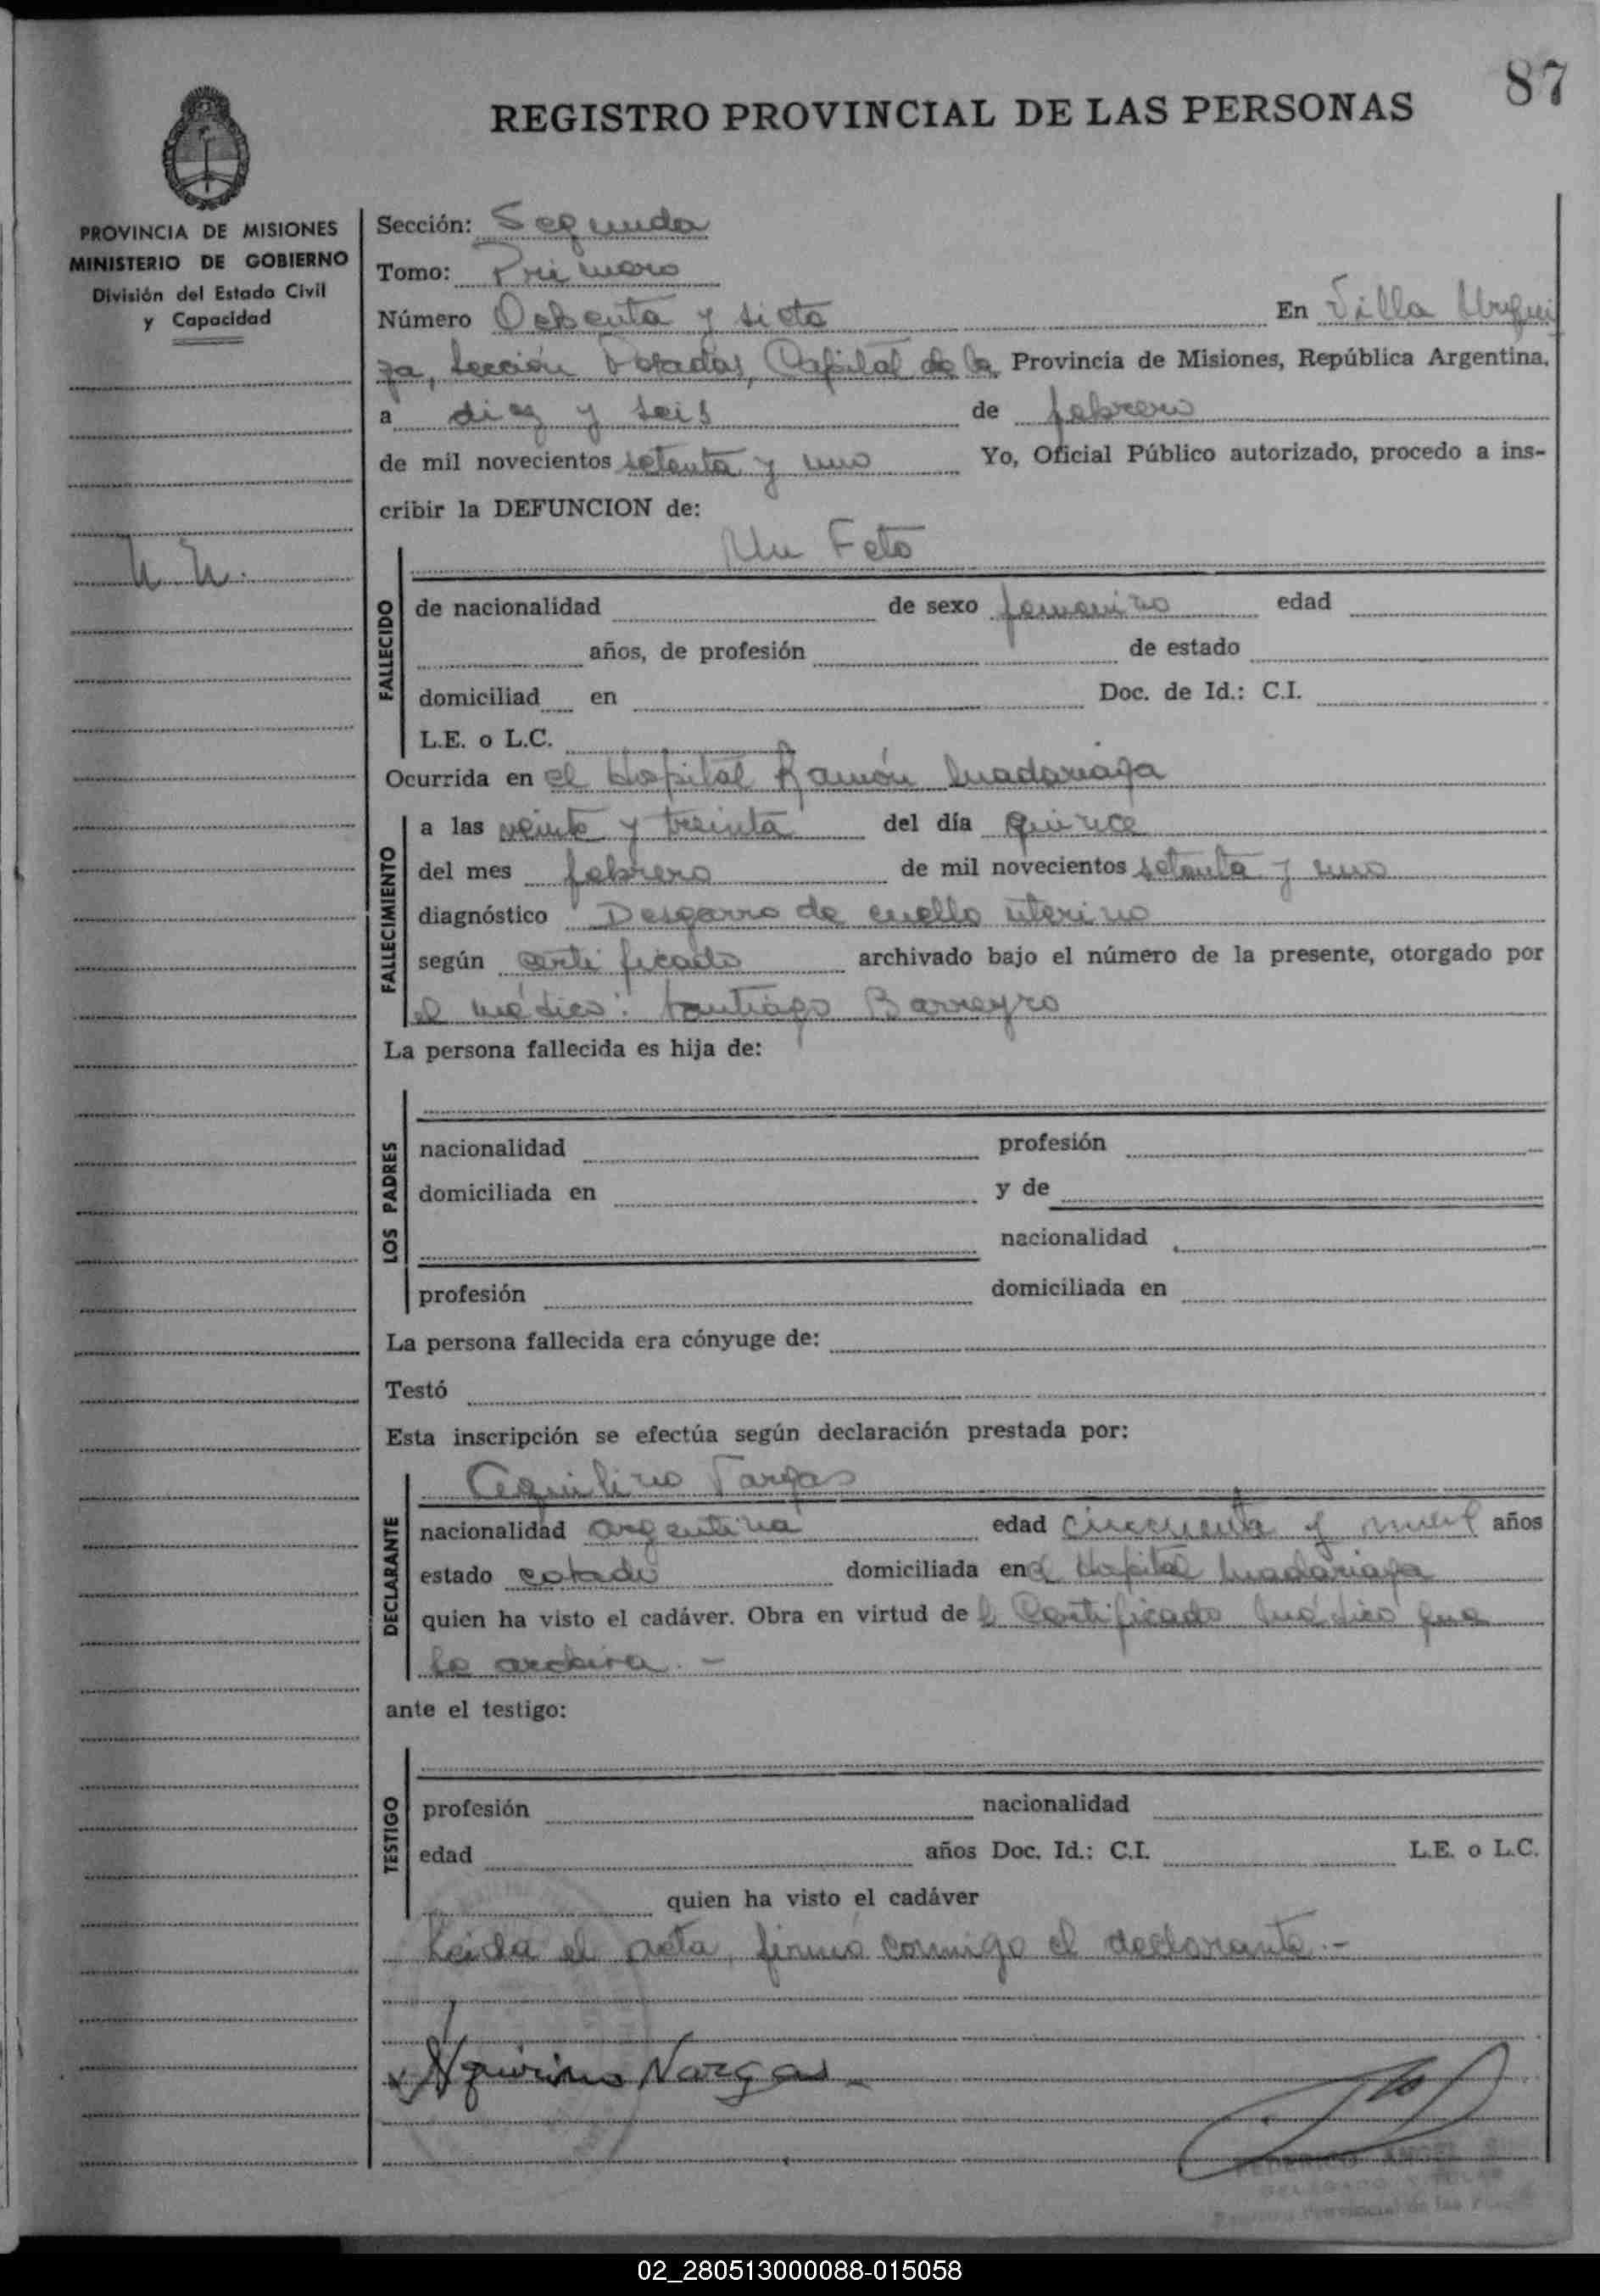 87
REGISTRO PROVINCIAL DE LAS PERSONAS
PROVINCIA DE MISIONES
MINISTERIO DE GOBIERNO
División del Estado Civil
y Capacidad
N.N.
Sección: Segunda
Tomo: Primero
Número Ochenta y siete En Villa Urqui
za, Sección Posadas, Capital de la Provincia de Misiones, República Argentina,
a diez y seis de febrero
de mil novecientos setenta y uno Yo, Oficial Público autorizado, procedo a ins-
cribir la DEFUNCION de:
Un Feto
FALLECIDO
de nacionalidad de sexo femenino edad
años, de profesión de estado
domiciliad en Doc. de Id.: C.I.
L.E. o L.C.
Ocurrida en el Hospital Ramón Madariaga
FALLECIMIENTO
a las veinte y treinta del día quince
del mes febrero de mil novecientos setenta y uno
diagnóstico Desgarro de cuello uterino
según certificado archivado bajo el número de la presente, otorgado por
el médico: Santiago Barreyro
La persona fallecida es hija de:
LOS PADRES
nacionalidad profesión
domiciliada en y de
nacionalidad
profesión domiciliada en
La persona fallecida era cónyuge de:
Testó
Esta inscripción se efectúa según declaración prestada por:
DECLARANTE
Aquilino Vargas
nacionalidad argentina edad cincuenta y nueve años
estado casado domiciliada en el Hospital Madariaga
quien ha visto el cadáver. Obra en virtud de l Certificado médico que
se archiva. -
ante el testigo:
TESTIGO
profesión nacionalidad
edad años Doc. Id.: C.I. L.E. o L.C.
quien ha visto el cadáver
Leida el acta, firmó conmigo el declarante.-
Aquirino Vargas
FEDERICO ANGEL
Registro Provincial de las
02_280513000088-015058